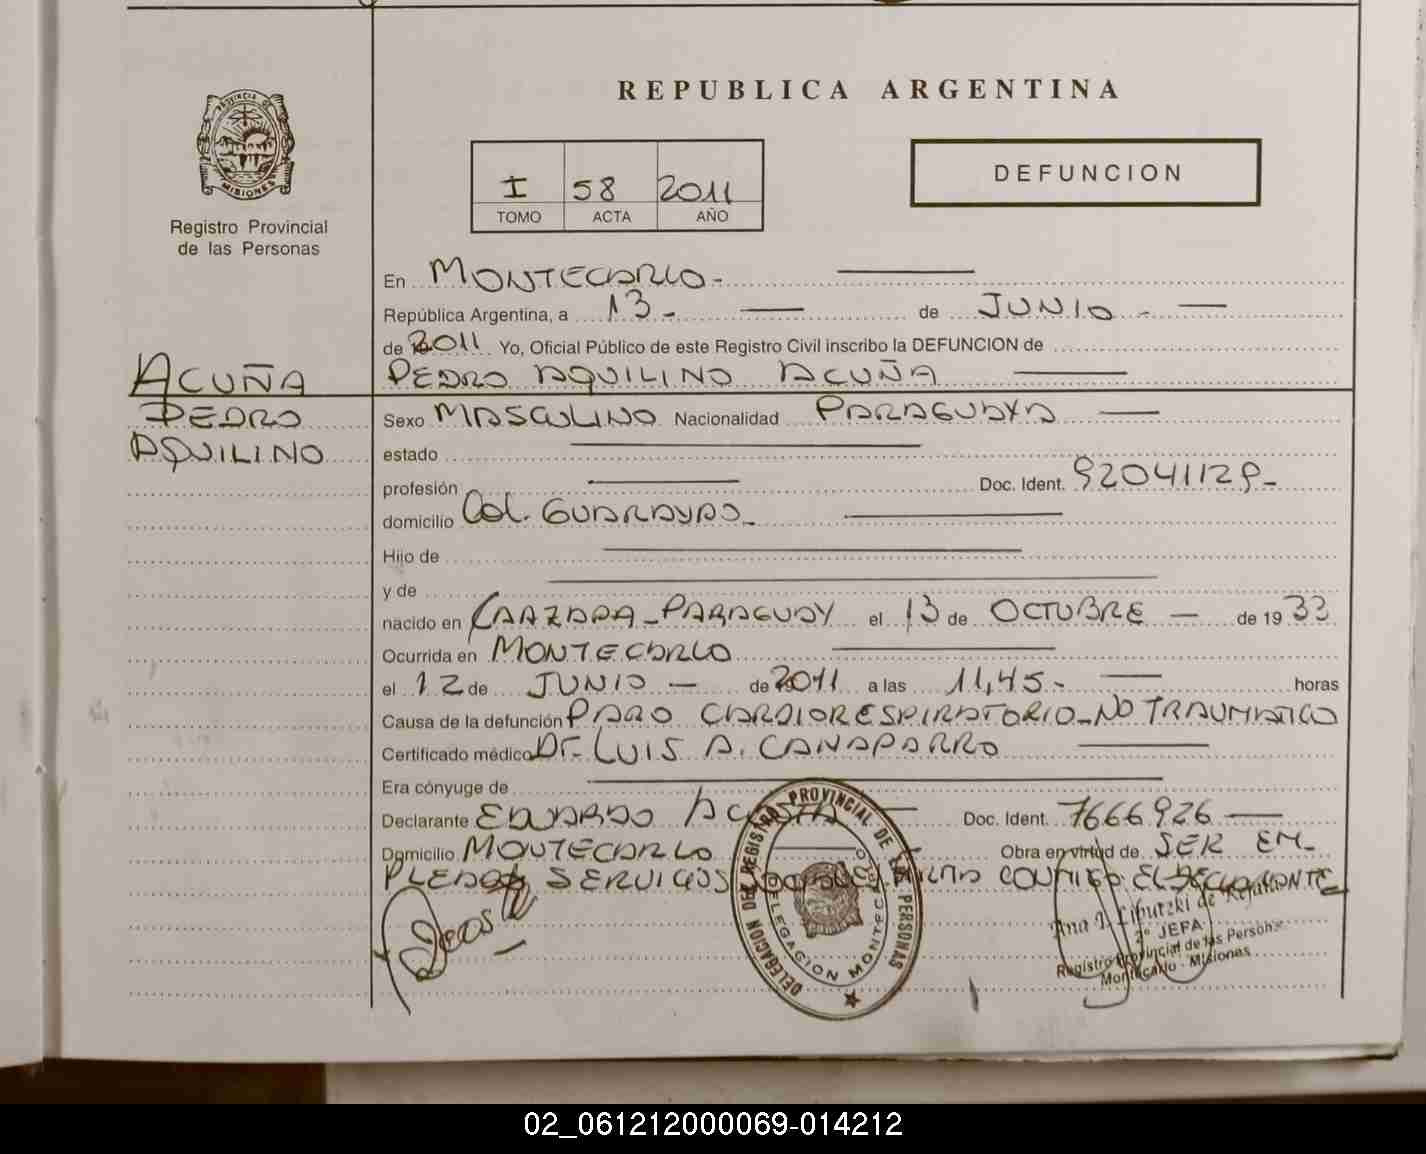 REPUBLICA ARGENTINA
PROVINCIA DE
MISIONES
Registro Provincial
de las Personas
I 58 2011
TOMO ACTA AÑO
DEFUNCION
En MONTECARLO-
República Argentina, a 13- de JUNIO-
de 2011 Yo, Oficial Público de este Registro Civil inscribo la DEFUNCION de
PEDRO AQUILINO ACUÑA
ACUÑA
PEDRO
AQUILINO
Sexo MASCULINO Nacionalidad PARAGUAYA
estado
profesión Doc. Ident. 92041129-
domicilio Col. GUARAYPO-
Hijo de
y de
nacido en CAAZAPA-PARAGUAY el 13 de OCTUBRE - de 1933
Ocurrida en MONTECARLO
el 12 de JUNIO - de 2011 a las 11,45- horas
Causa de la defunción PARO CARDIORESPIRATORIO-NO TRAUMATICO
Certificado médico Dr. LUIS A. CANAPARRO
Era cónyuge de
Declarante EDUARDO ACOSTA Doc. Ident. 7666926
Domicilio MONTECARLO Obra en virtud de SER EM-
PLEADO SERVICIOS FIRMA CONMIGO EL DECLARANTE
DELEGACION DEL REGISTRO PROVINCIAL DE LAS PERSONAS
DELEGACION MONTECARLO
Ana I. Liputzki de
2° JEFA
Registro Provincial de las Personas
Montecarlo - Misiones
02_061212000069-014212